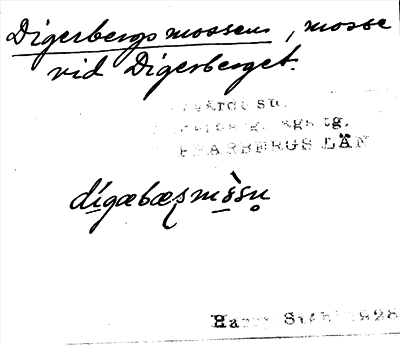 Digerbergsmossen, mosse
vid Digerberget.
ARBERGS LÄN
dígæbæʂms̀sṇ
Harry Ståhl 1928